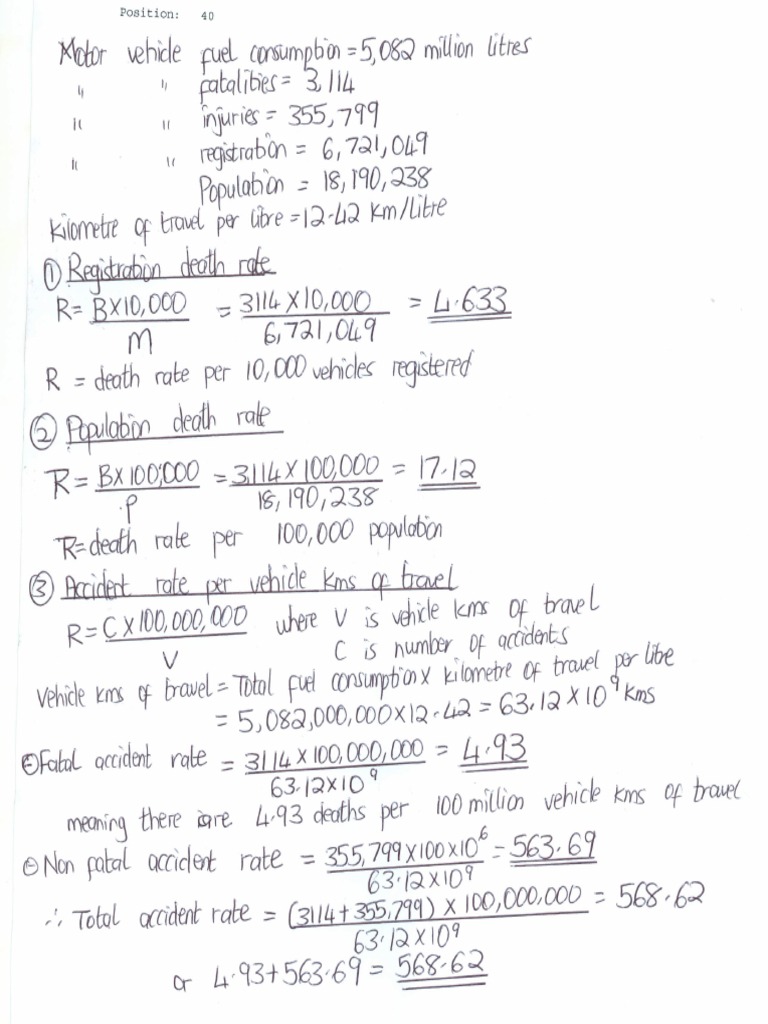 Position: 40
Motor vehicle fuel consumption = 5,082 million litres
" " fatalities = 3,114
" " injuries = 355,799
" " registration = 6,721,049
Population = 18,190,238
Kilometre of travel per litre = 12.42 km/litre
① Registration death rate
R = B×10,000 / M = 3114 × 10,000 / 6,721,049 = 4.633
R = death rate per 10,000 vehicles registered
② Population death rate
R = B× 100,000 / P = 3114 × 100,000 / 18,190,238 = 17.12
R = death rate per 100,000 population
③ Accident rate per vehicle kms of travel
R = C × 100,000,000 / V where V is vehicle kms of travel
C is number of accidents
Vehicle kms of travel = Total fuel consumption × kilometre of travel per litre
= 5,082,000,000 × 12.42 = 63.12 × 10⁹ kms
Fatal accident rate = 3114 × 100,000,000 / 63.12×10⁹ = 4.93
meaning there are 4.93 deaths per 100 million vehicle kms of travel
Non fatal accident rate = 355,799 × 100 × 10⁶ / 63.12 × 10⁹ = 563.69
∴ Total accident rate = (3114 + 355,799) × 100,000,000 / 63.12 × 10⁹ = 568.62
or 4.93 + 563.69 = 568.62